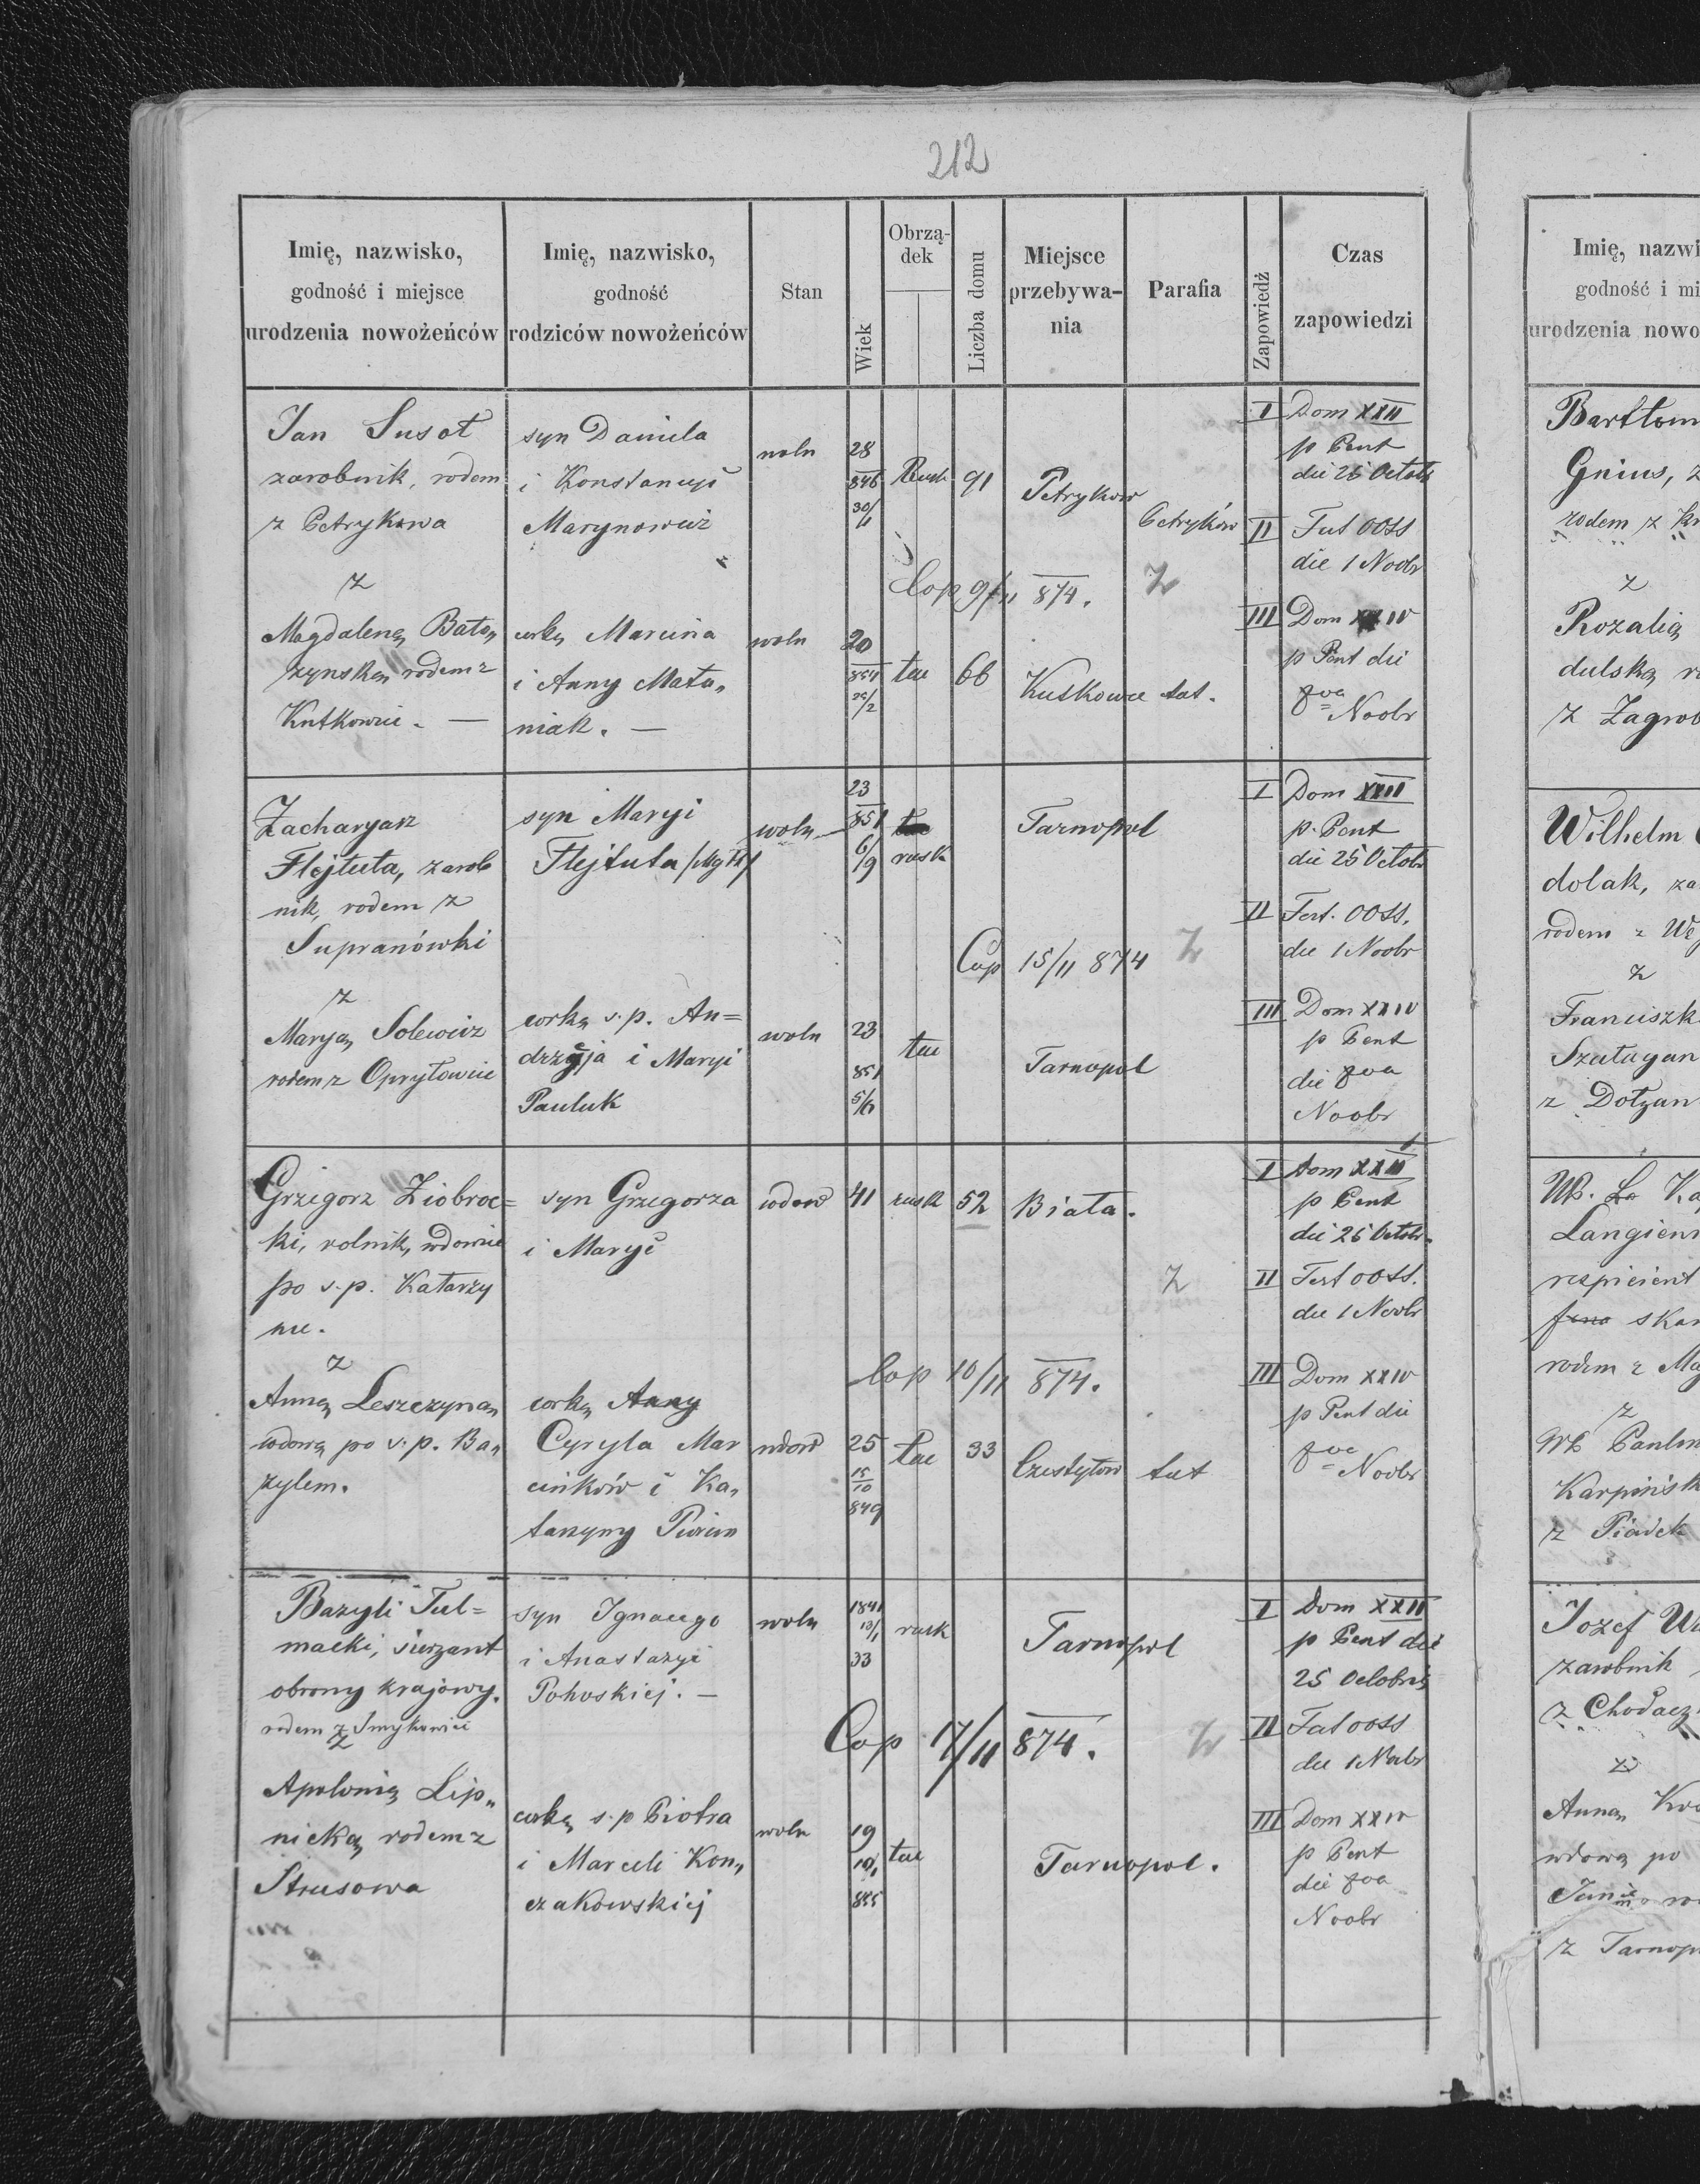 212
Imię, nazwisko,
godność i miejsce
urodzenia nowożeńców
Imię, nazwisko,
godność
rodziców nowożeńców
Stan
Wiek
Obrzą-
dek
Liczba domu
Miejsce
przebywa-
nia
Parafia
Zapowiedź
Czas
zapowiedzi
Jan Susoł
zarobnik, rodem
z Petrykowa
z
Magdaleną Bato„
zynską rodem z
Kutkowiec. —
syn Daniela
i Konstancyi
Marynowicz
corką Marcina
i Anny Mata„
niak. —
woln
woln
28
846
30/
20
854
2
Rusk
tac
91
66
Cop 9/11 874.
Petrykow
Kutkowce
Petryków
z
tut.
I Dom XXII
p Pent
die 25 Octob
II Fest OOSS
die 1 Noobr
III Dom XXIV
p Pent die
8va Noobr
Zacharyasz
Flejtuta, zarob
nik, rodem z
Supranówki
z
Maryą Solewicz
rodem z Opryłowiec
syn Maryi
Flejtuta
corką s.p. An=
drzeja i Maryi
Pauluk
woln
woln
23
851
6/9
23
851
5/6
rusk
tac
Cop 15/11 874
Tarnopol
Tarnopol
z
I Dom XXII
p. Pent
die 25 Octobr
II Fest. OOSS.
die 1 Noobr
III Dom XXIV
p Pent
die 8va
Noobr
Grzegorz Ziobroc=
ki, rolnik, wdowiec
po s.p. Katarzy
nie.
z
Anną Leszczyną
wdową po s.p. Ba„
zylem.
syn Grzegorza
i Maryi
corką Anny
Cyryla Mar
cinków i Ka„
tarzyny
wdow
wdow
41
25
15
10
849
rusk
tac
52
33
Cop 10/11 874.
Biała.
Czystyłow
z
tut
I Dom XXII
p Pent
die 25 Octobr.
II Fest OOSS.
die 1 Noobr
III Dom XXIV
p Pent die
8va Noobr
Bazyli Tul=
macki, sierzant
obrony krajowy.
rodem z Smykowiec
z
Apolonią Lip„
nicką rodem z
Strusowa
syn Ignacego
i Anastazyi
Pohoskiej. —
corką s.p Piotra
i Marceli Kon„
czakowskiej
woln
woln
1841
13/1
33
19
10/1
855
rusk
tac
Cop 17/11 874.
Tarnopol
Tarnopol.
z
I Dom XXII
p Pent die
25 Octobris
II Fest OOSS
die 1 Nobr
III Dom XXIV
p Pent
die 8va
Noobr
Imię, nazwi
godność i mi
urodzenia nowo
Bartłom
Gnius, z
rodem z Kr
z
Rozalią
dulską r
z Zagrob
Wilhelm
dolak, za
rodem z Wę
z
Franciszk
Szatayan
z Dołzan
Langien
respicient
skar
rodem z Ma
z
Paulin
Karpińsk
z Piadek
Jozef
zarobnik
z Chodacz
z
Anną
wdową po
z Tarnop